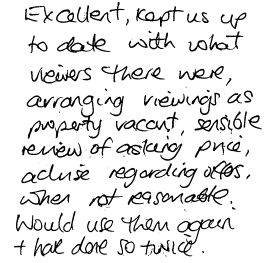 Excellent, kept us up
to date with what
viewers there were,
arranging viewings as
property vacant, sensible
review of asking price,
advise regarding offers,
when not reasonable.
Would use them again
+ have done so twice.